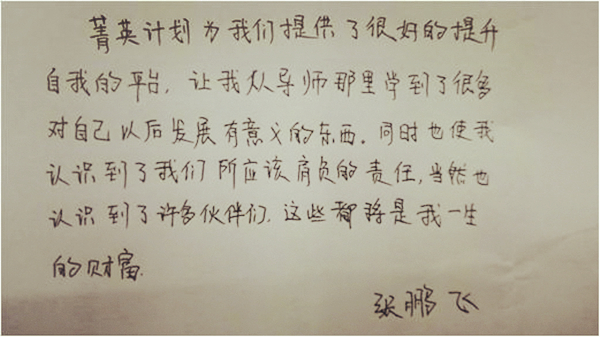 菁英计划为我们提供了很好的提升
自我的平台，让我从导师那里学到了很多
对自己以后发展有意义的东西。同时也使我
认识到了我们所应该肩负的责任，当然也
认识到了许多伙伴们，这些都将是我一生
的财富。
张鹏飞